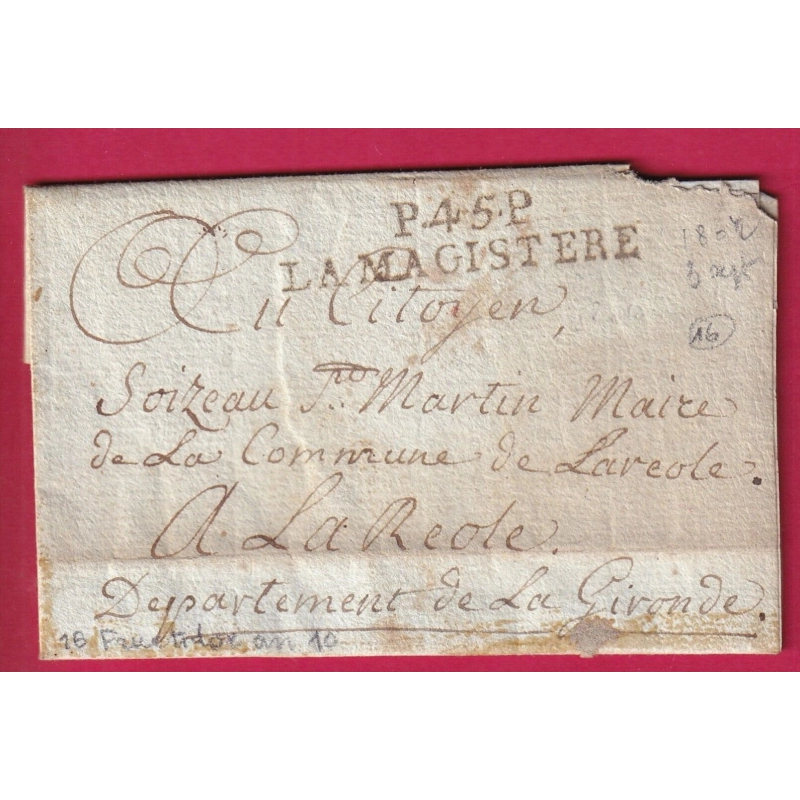 P.4.5.P
LA MAGISTERE
1802
3 sept
16
Au Citoyen,
Soizeau Sto Martin Maire
de La Commune de Lareole.
A La Reole.
Departement de La Gironde.
16 Fructidor an 10